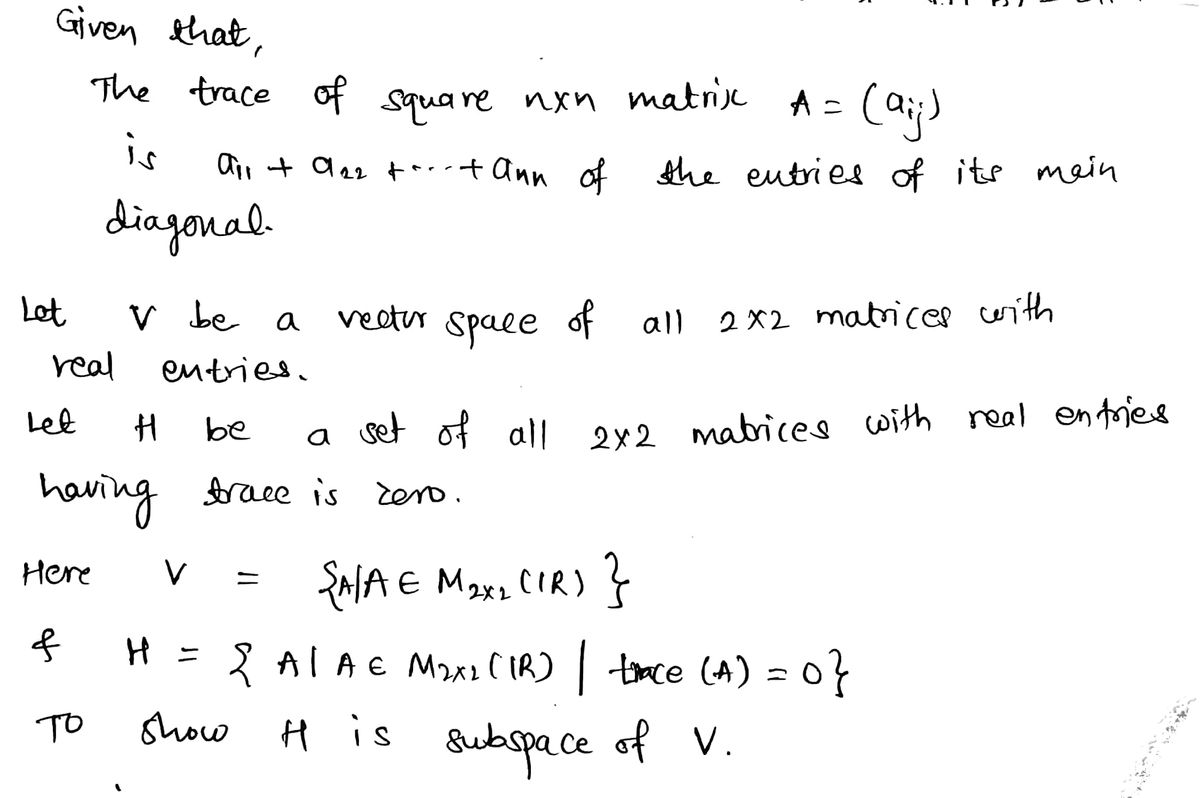 Given that,
The trace of square nxn matrix A = (aij)
is a11 + a22 + ... + ann of the entries of its main
diagonal.
Let V be a vector space of all 2x2 matrices with
real entries.
Let H be a set of all 2x2 matrices with real entries
having trace is zero.
Here V = {A|A ∈ M2x2 (IR) }
& H = { A | A ∈ M2x2 (IR) | trace (A) = 0}
To show H is subspace of V.